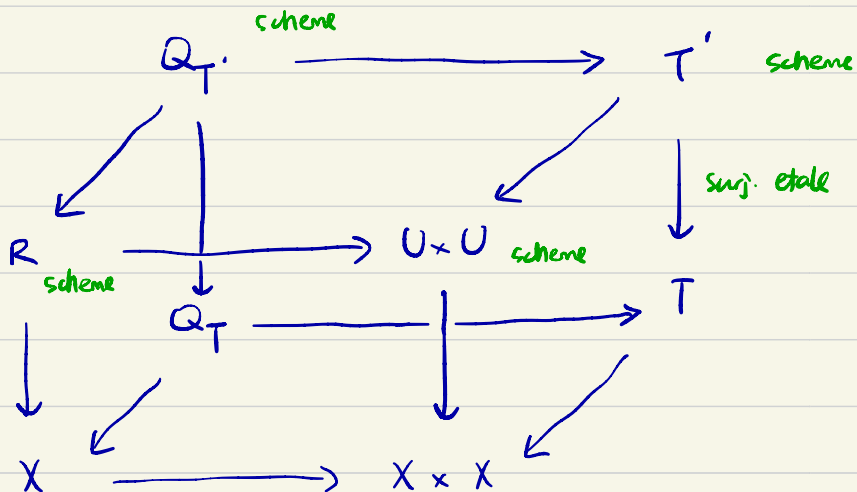 scheme
Q_T' T' scheme
surj. etale
R U × U scheme
scheme
Q_T T
X X × X